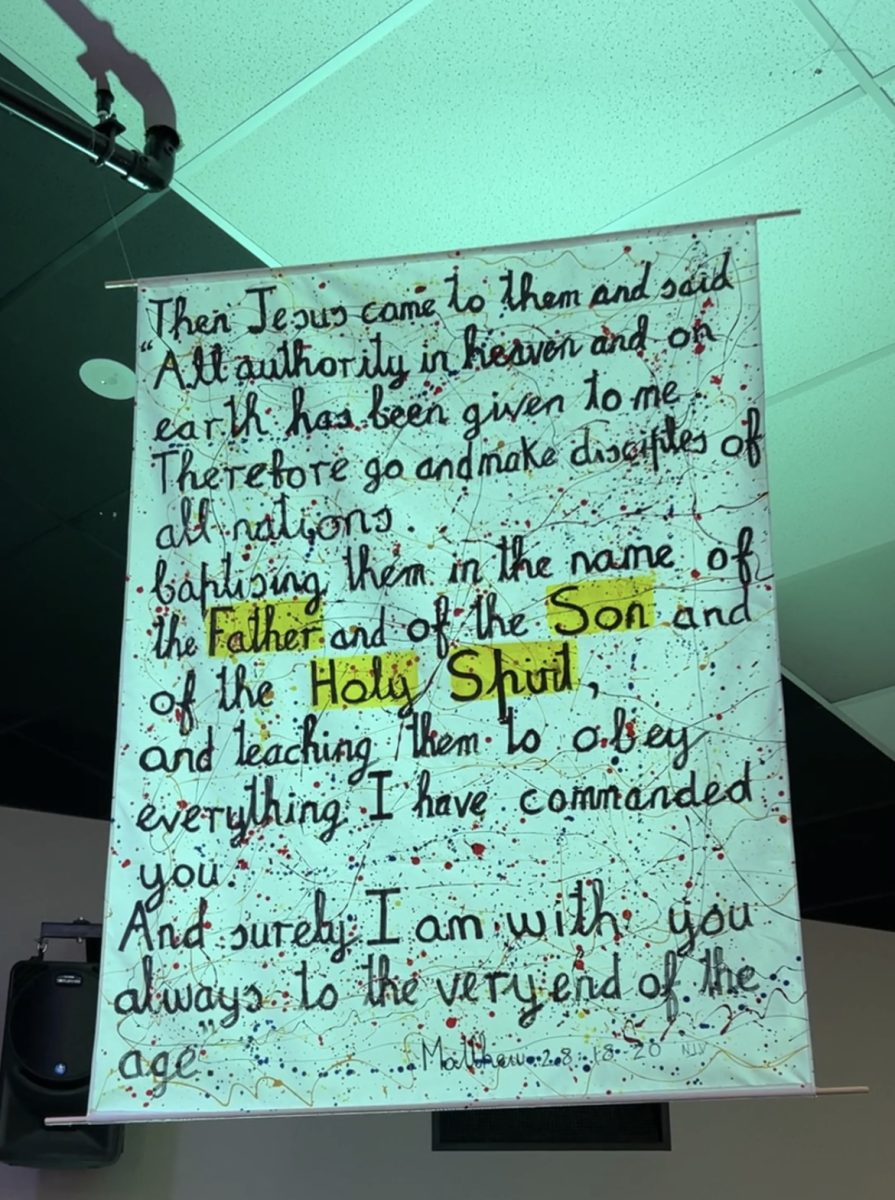 Then Jesus came to them and said
"All authority in heaven and on
earth has been given to me.
Therefore go and make disciples of
all nations.
baptising them in the name of
the Father and of the Son and
of the Holy Spirit,
and teaching them to obey
everything I have commanded
you.
And surely I am with you
always to the very end of the
age."
Matthew 28:18-20 NIV